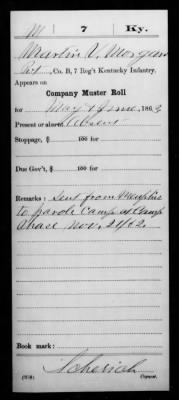 M 7 Ky.
Martin V. Morgan
Pvt, Co. B, 7 Reg't Kentucky Infantry.
Appears on
Company Muster Roll
for May & June, 1863
Present or absent Absent
Stoppage, $ 100 for
Due Gov't, $ 100 for
Remarks: Sent from Memphis
to Parole Camp at Camp
Chase Nov. 24/62.
Book mark:
Scherich
(858) Copyist.